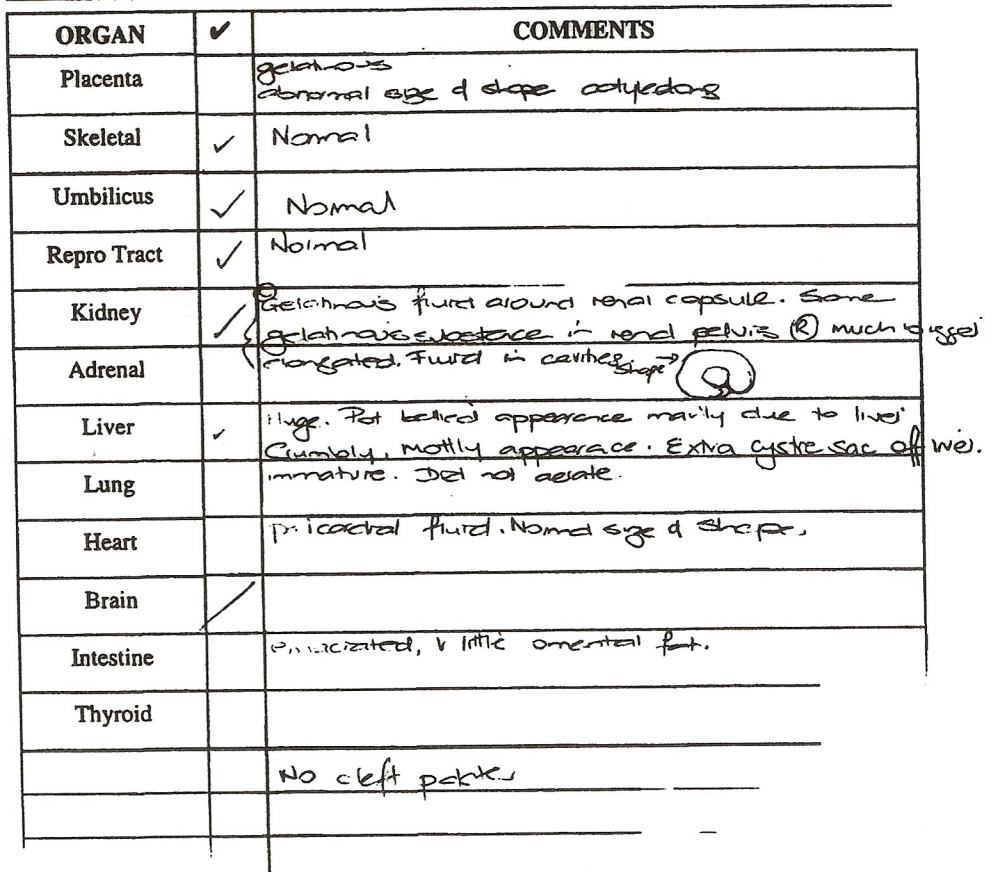 ORGAN ✔ COMMENTS
Placenta gelatinous
abnormal size & shape cotyledons
Skeletal ✓ Normal
Umbilicus ✓ Normal
Repro Tract ✓ Normal
Kidney ✓ Gelatinous fluid around renal capsule. Some
gelatinous substance in renal pelvis (R) much bigger
Adrenal elongated. Fluid in cavities. shape →
Liver ✓ Huge. Pot bellied appearance mainly due to liver
Crumbly, mottly appearace. Extra cystic sac off liver.
Lung immature. Did not aerate.
Heart pericardial fluid. Normal size & shape.
Brain
Intestine emaciated, v little omental fat.
Thyroid
No cleft palate